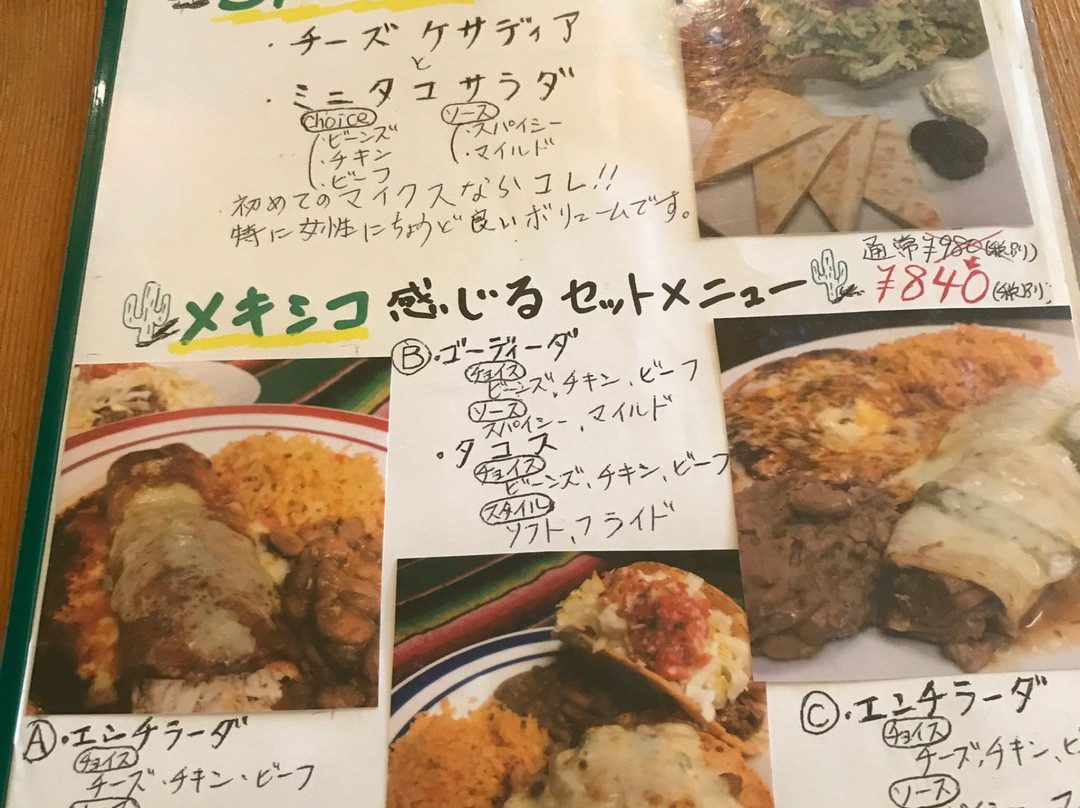 ・チーズ ケサディア
と
・ミニタコサラダ
choice ソース
・ビーンズ ・スパイシー
・チキン ・マイルド
・ビーフ
初めてのマイクスならコレ!!
特に女性にちょうど良いボリュームです。
通常¥980(税別)
¥840(税別)
メキシコ感じるセットメニュー
Ⓑ・ゴーディーダ
チョイス
ビーンズ、チキン、ビーフ
ソース
スパイシー、マイルド
・タコス
チョイス
ビーンズ、チキン、ビーフ
スタイル
ソフト、フライド
Ⓐ・エンチラーダ
チョイス
チーズ・チキン・ビーフ
Ⓒ・エンチラーダ
チョイス
チーズ、チキン、ビ
ソース